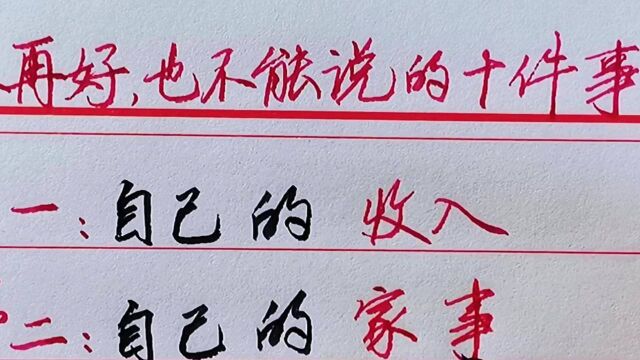 再好，也不能说的十件事
一：自己的收入
二：自己的家事